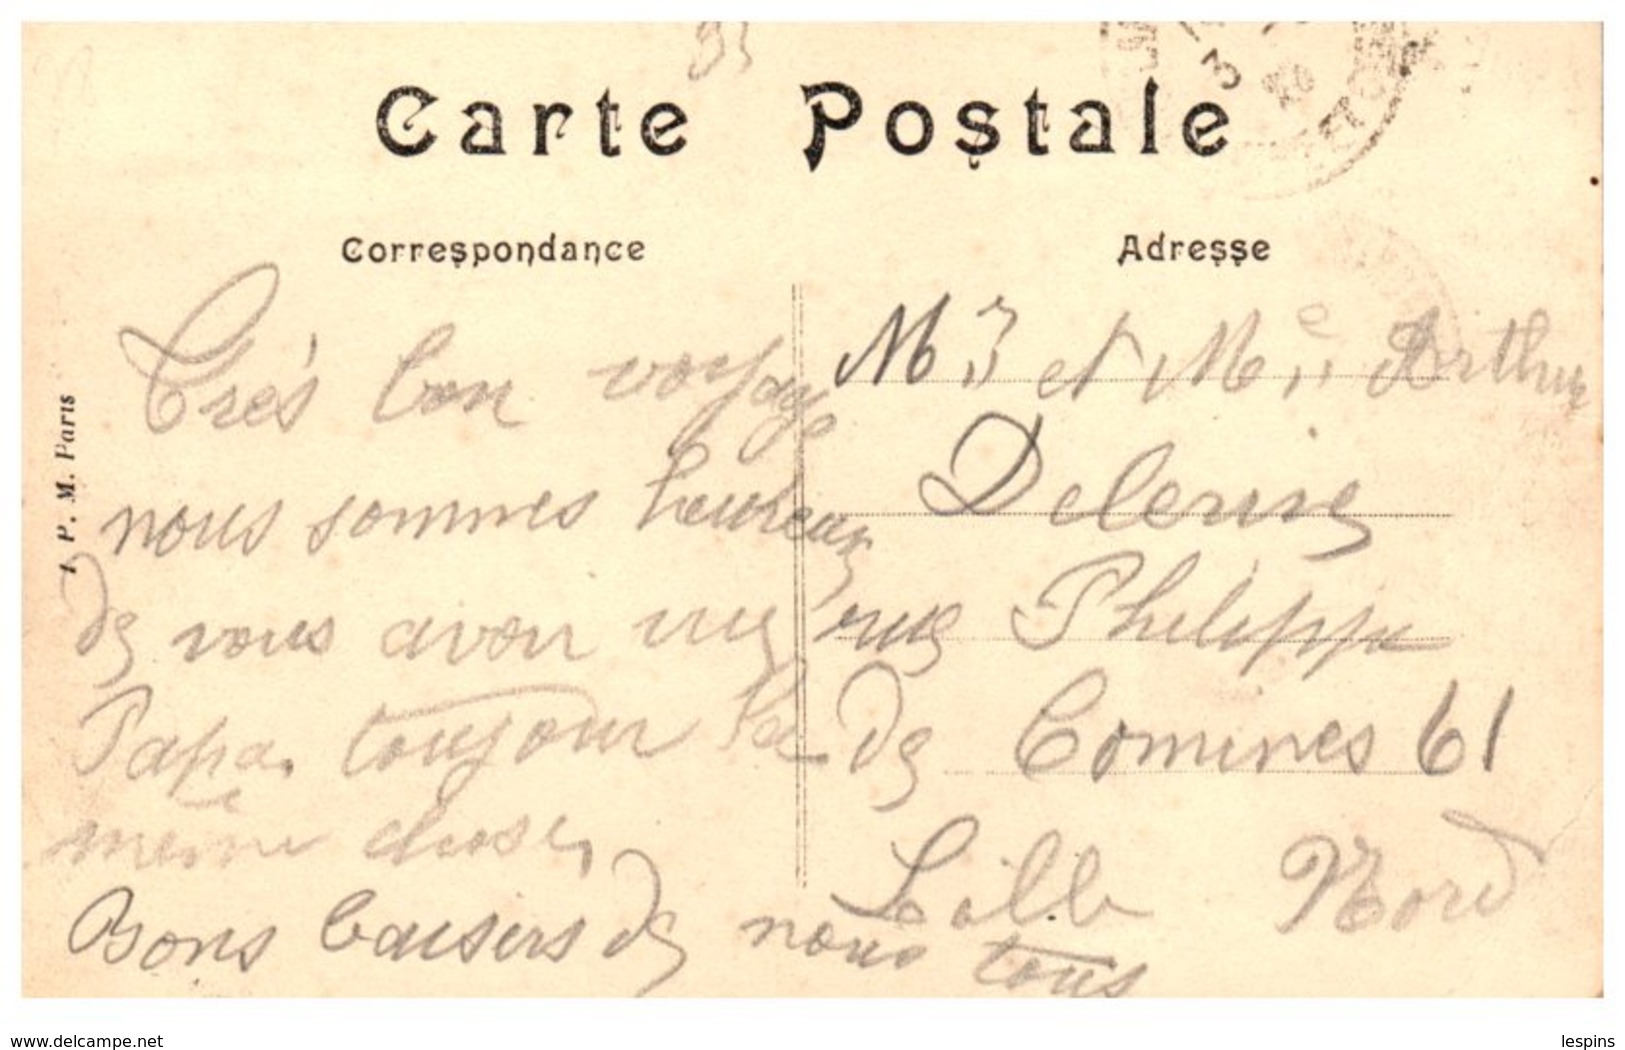 Carte Postale
Correspondance
Très bon voyage
nous sommes heureux
de vous avoir vue
Papa toujour la
même chose,
Bons baisers de nous tous
Adresse
Mr et Me Arthur
rue Philippe
de Comines 61
Lille Nord
P. M. Paris
www.delcampe.net
lespins